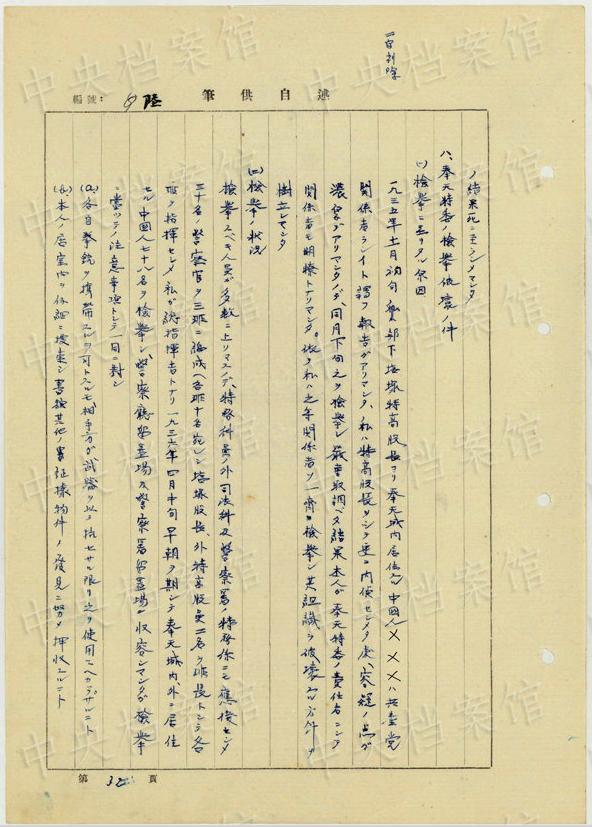 筆供自述
編號: 陸
ノ結果死ニ至ラシメマシタ
八、奉天特委ノ檢挙破壊ノ件
(一)檢挙ニ至リタル原因
一九三五年十一月初旬私ハ部下塔塚特高股長ヨリ奉天城内居住ノ中國人×××ハ共産党
関係者ラシイト謂フ報告ガアリマシタ、私ハ特高股長ヲシテ更ニ内偵セシメタ處、容疑ノ点ガ
濃厚デアリマシタノデ、同月下旬之ヲ檢挙シ厳重取調ベタ結果本人ガ奉天特委ノ責任者ニシテ
関係者モ明瞭トナリマシタ。依テ私ハ之等関係者ヲ一齊ニ檢挙シ其組織ヲ破壊スル方針ヲ
樹立シマシタ
(二)檢挙ノ状況
檢挙スベキ人員ガ多数ニ上リマスノデ、特務科員ノ外司法科及警察署ノ特務係ニモ應援セシメ
三十名ノ警察官ヲ三班ニ編成ヘ各班十名宛シ塔塚股長、外特高股員二名ヲ班長トシテ各
班ヲ指揮セシメ私ガ總指揮者トナリ一九三六年四月中旬早朝ヲ期シテ奉天城内、外ニ居住
セル中國人七十八名ヲ檢挙シ、警察廳留置場及警察署留置場ニ収容シマシタガ檢挙
ニ當ッテノ注意事項トシテ一同ニ対シ
(a)各自拳銃ヲ携帯スルヲ可トスルモ相手方ガ武器ヲ以テ抗セザル限リ之ヲ使用スベカラザルコト
(b)本人ノ居室内ヲ仔細ニ捜索シ書類其他ノ罪証據物件ノ發見ニ努メ押収スルコト
第 頁
中央档案馆